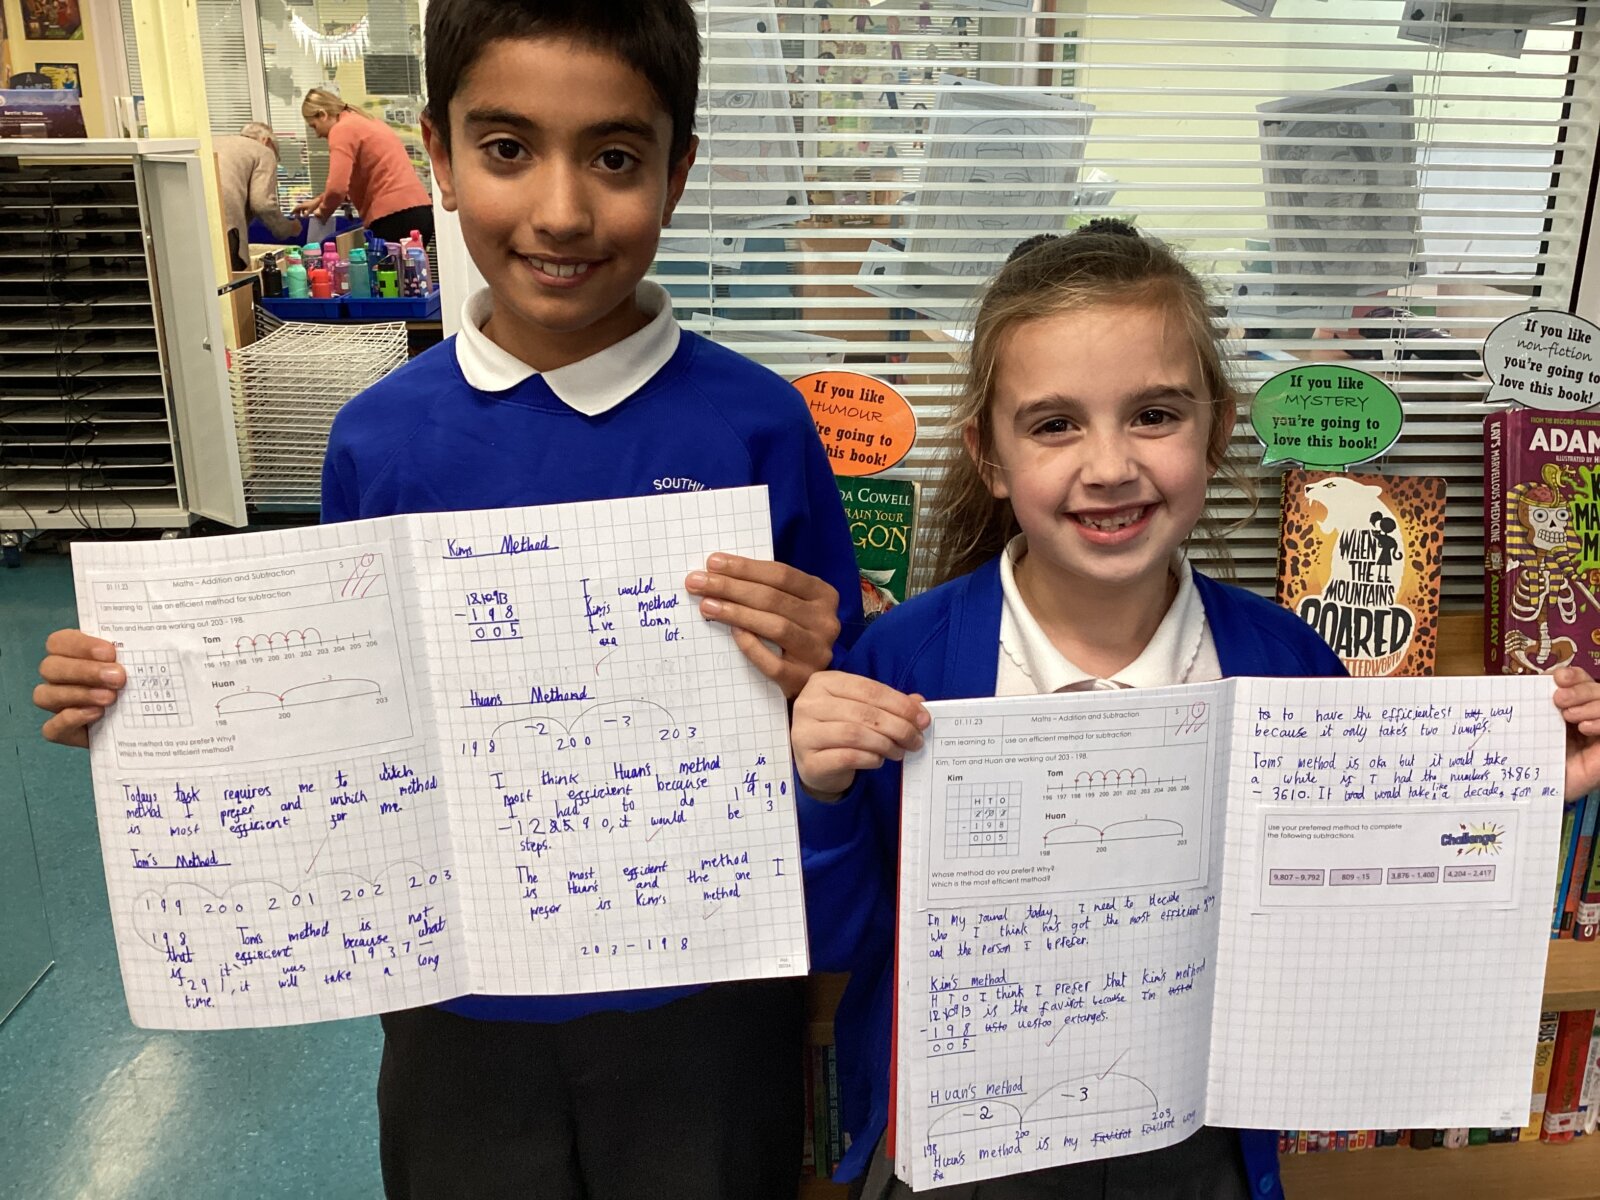 SOUTHIL
If you like
HUMOUR
're going to
his book!
DA COWELL
RAIN YOUR
GON
If you like
MYSTERY
you're going to
love this book!
WHEN THE
MOUNTAINS
ROARED
TTERWORTH
If you like
non-fiction
you're going to
love this book!
ADAM
KAY'S MARVELLOUS MEDICINE
ADAM KAY
01.11.23
Maths – Addition and Subtraction
S
I am learning to
use an efficient method for subtraction
Kim, Tom and Huan are working out 203 - 198.
Kim
H T O
- 1 9 8
0 0 5
Tom
196 197 198 199 200 201 202 203 204 205 206
Huan
- 2
- 3
198
200
203
Whose method do you prefer? Why?
Which is the most efficient method?
Todays task requires me to witch
method I prefer and which method
is most efficient for me.
Tom's Method
199 200 201 202 203
198 Toms method is not
that efficient because what
if it was 1937 –
291, it will take a long
time.
Kims Method
- 1 9 8
0 0 5
I would
Kim's method
I've donn
lot.
Huans Methord
198 -2 200 -3 203
I think Huans method is
most efficient because if
I had to do 1990
- 128590, it would be 3
steps.
The most efficient method
is Huans and the one I
prefer is Kim's method
203 - 198
01.11.23
Maths – Addition and Subtraction
S
I am learning to
use an efficient method for subtraction
Kim, Tom and Huan are working out 203 - 198.
Kim
H T O
- 1 9 8
0 0 5
Tom
196 197 198 199 200 201 202 203 204 205 206
Huan
198
200
203
Whose method do you prefer? Why?
Which is the most efficient method?
In my jounal today, I need to decide
who I think has got the most efficient way
and the person I prefer.
Kim's method
H T O I think I prefer that Kim's method
is the favirot because I'm
- 1 9 8 uestoo extanges.
0 0 5
Huan's method
-2
-3
198
200
203
Huan's method is my favirot way
to have the efficientest way
because it only takes two jumps.
Toms method is oka but it would take
a while if I had the numbers 34863
- 3610. It would take like a decade, for me.
Use your preferred method to complete
the following subtractions.
Challenge
9,807 – 9,792
809 – 15
3,876 – 1,400
4,204 – 2,417